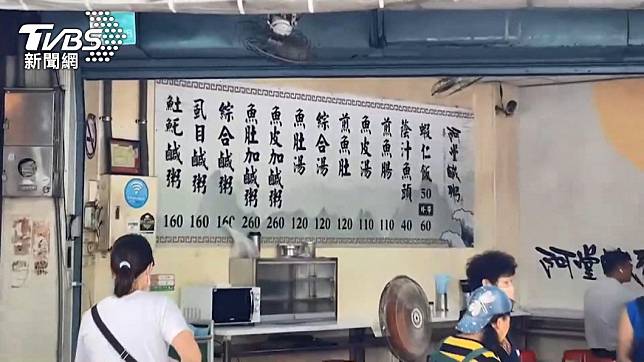 TVBS
新聞網
阿堂鹹粥
蝦仁飯 50 60
蔭汁魚頭 40
煎魚腸 110
魚皮湯 110
煎魚肚 120
綜合湯 120
魚肚湯 120
魚皮加鹹粥 260
魚肚加鹹粥 260
綜合鹹粥 160
虱目鹹粥 160
𩵚魠鹹粥 160
阿堂鹹粥